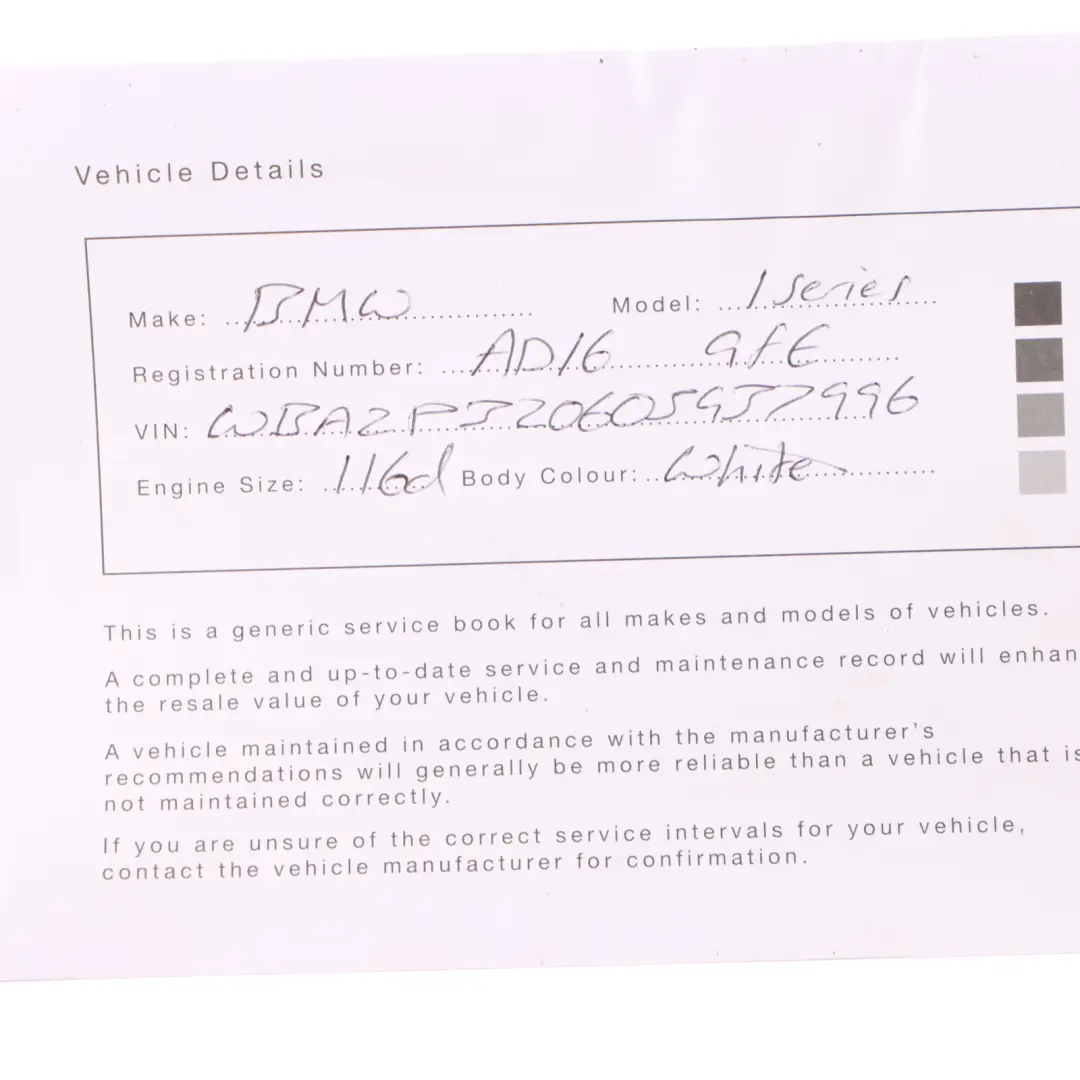 Vehicle Details
Make: BMW Model: 1 Series
Registration Number: AD16 GFE
VIN: WBA2P320605937996
Engine Size: 116d Body Colour: White
This is a generic service book for all makes and models of vehicles.
A complete and up-to-date service and maintenance record will enhan
the resale value of your vehicle.
A vehicle maintained in accordance with the manufacturer's
recommendations will generally be more reliable than a vehicle that is
not maintained correctly.
If you are unsure of the correct service intervals for your vehicle,
contact the vehicle manufacturer for confirmation.